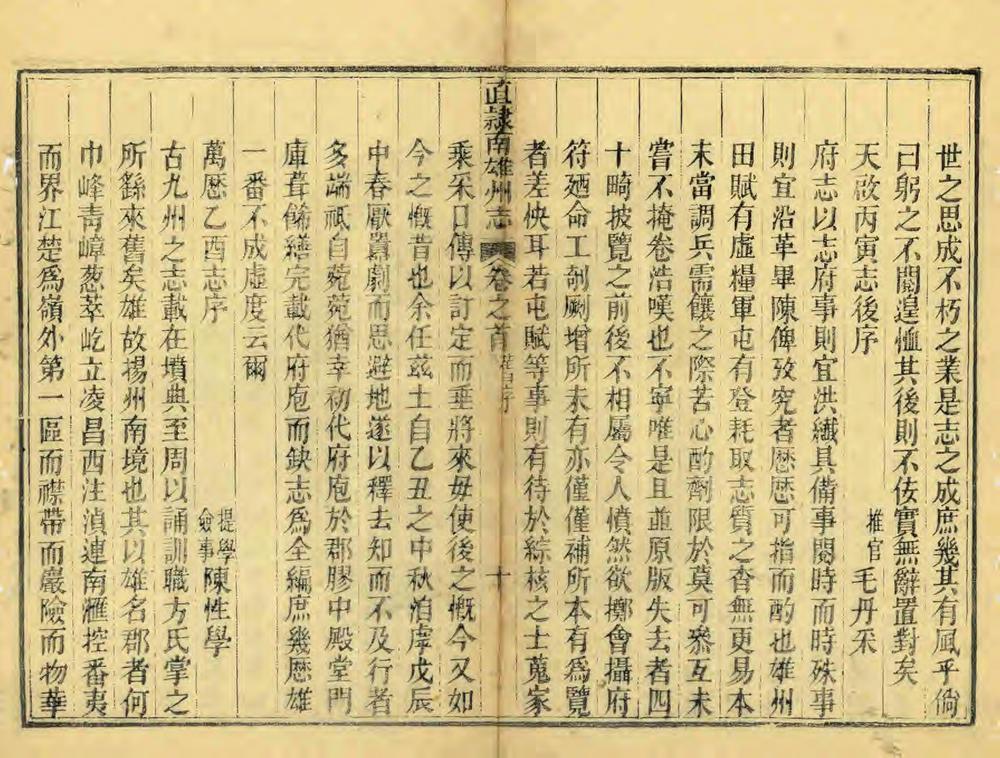 世之思成不朽之業是志之成庶幾其有風乎倘
曰躬之不閱遑恤其後則不佞實無辭置對矣
天啟丙寅志後序
推官毛丹采
府志以志府事則宜洪纖具備事閱時而時殊事
則宜沿革畢陳俾攷究者歷歷可指而酌也雄州
田賦有虛糧軍屯有登耗取志質之杳無更易本
末當調兵需饟之際苦心酌劑限於莫可叅互未
嘗不掩卷浩嘆也不寧唯是且並原版失去者四
十畸披覽之前後不相屬令人憤然欲擲會攝府
符廼命工剞劂增所未有亦僅僅補所本有爲覽
者差快耳若屯賦等事則有待於綜核之士蒐家
直隷南雄州志
卷之首
舊序
十
乘采口傳以訂定而垂將來毋使後之慨今又如
今之慨昔也余任兹土自乙丑之中秋洎虖戊辰
中春厭囂劇而思避地遂以釋去知而不及行者
多端祗自菀菀猶幸初代府庖於郡膠中殿堂門
庫葺餙繕完載代府庖而缺志爲全編庶幾歷雄
一番不成虛度云爾
萬歷乙酉志序
提學僉事陳性學
古九州之志載在墳典至周以誦訓職方氏掌之
所繇來舊矣雄故揚州南境也其以雄名郡者何
巾峰靑嶂葱萃屹立凌昌西注湞連南滙控番夷
而界江楚爲嶺外第一區而襟帶而巖險而物華